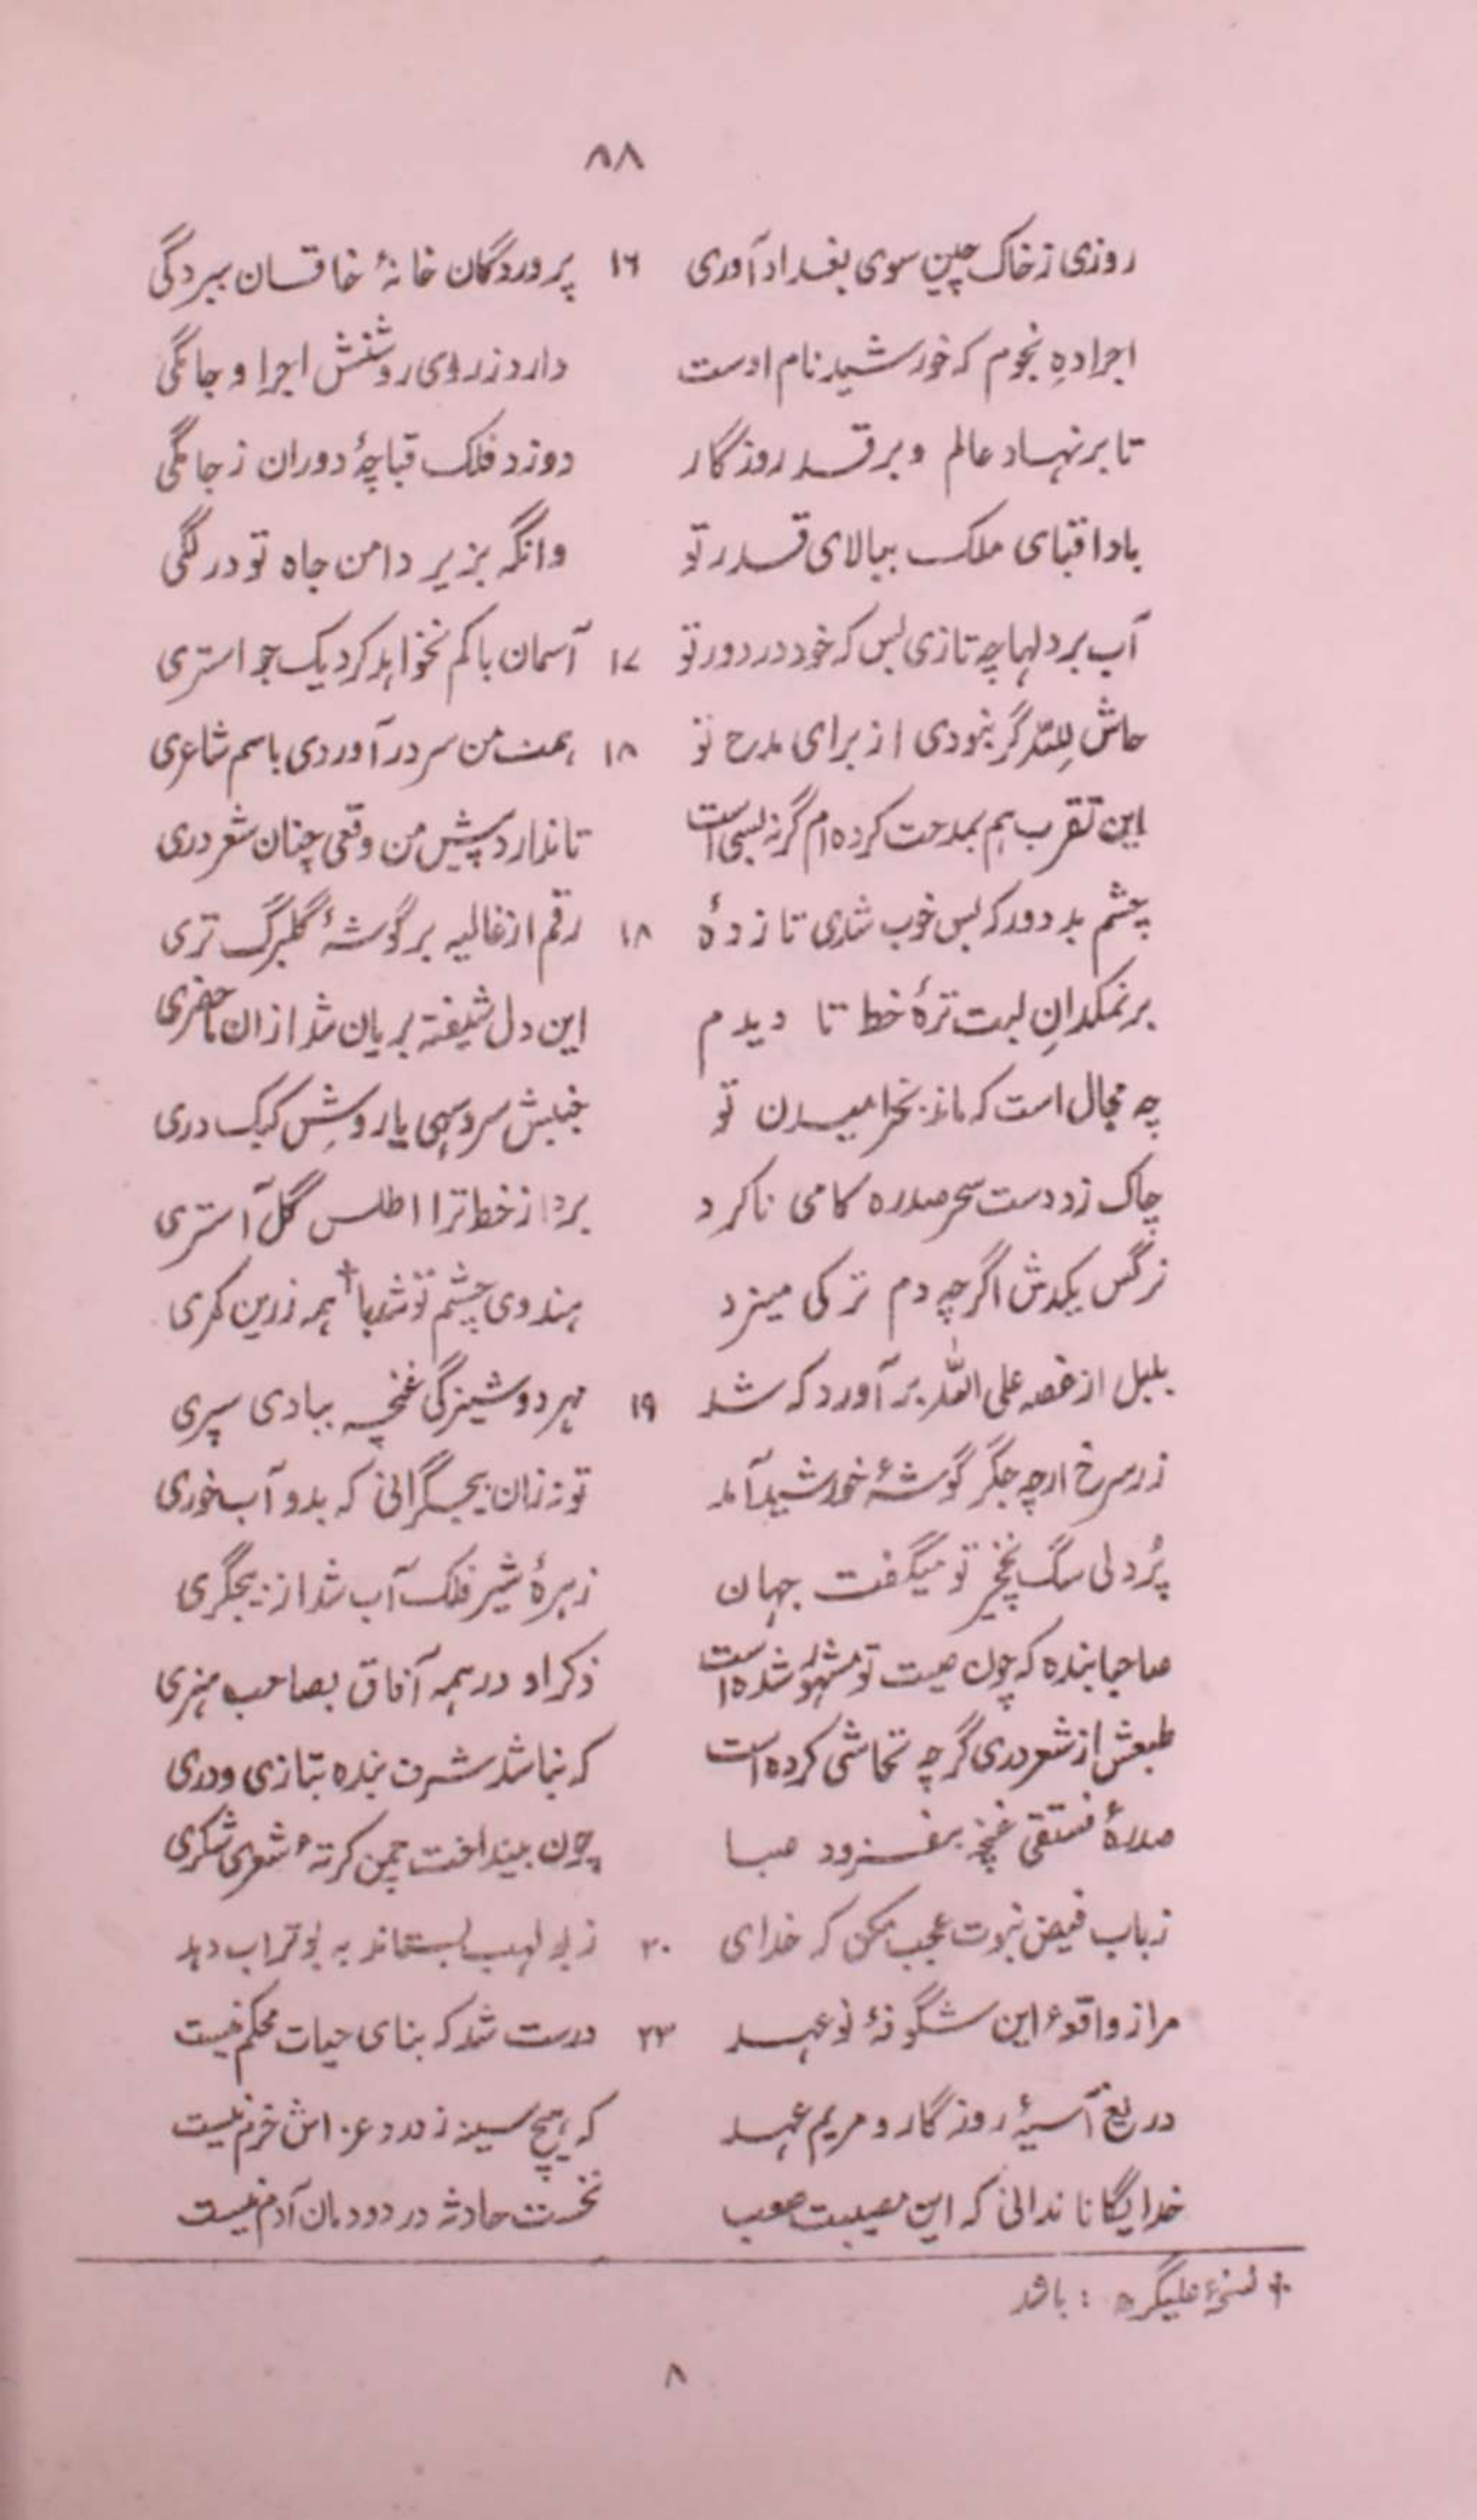 ۸۸
روزی ز خاک چین سوی بغداد آوری ۱۶ پروردگان خانهٔ خاقان ببردگی
اجرا دہِ نجوم که خورشید نام اوست دارد ز روی روشنش اجرا و جامگی
تا بر نہاد عالم و بر قد روزگار دوزد فلک قباچهٔ دوران ز جامگی
بادا قبای ملک ببالای قدر تو وانگہ بزیر دامن جاہ تو در لگی
آب بر دلہا چه تازی بس که خود در دور تو ۱۷ آسمان باکم نخواہد کرد یک جو استری
حاش للہ گر نبودی از برای مدح تو ۱۸ ہمت من سر در آوردی باسم شاعری
این تقرب ہم بمدحت کردہ ام گرنہ بسی است تا ندارد پیش من وقعی چنان شعر دری
چشم بد دور که بس خوب شدی تا زدهٔ ۱۸ رقم از غالیه بر گوشهٔ گلبرگ تری
بر نمکدانِ لبت ترهٔ خط تا دیدم این دل شیفته بریان شد ازان ماحضری
چه مجال است که ماند بخرامیدن تو جنبش سرو سہی یا روشِ کبک دری
چاک زد دست سحر صدره کامی ناکرد برد از خط ترا اطلس گل آستری
نرگس یکدش اگرچه دم ترکی میزد ہندوی چشم تو شد با† ہمه زرین کمری
بلبل از غصه علی اللہ بر آورد که شد ۱۹ مہر دوشیزگی غنچه ببادی سپری
زر سرخ ارچه جگر گوشهٔ خورشید آمد تو ززان بجگرانی که بدو آب خوری
پُر دلی سگ نخچیر تو میگفت جہان زہرهٔ شیر فلک آب شد از بیجگری
صاحبا بنده که چون صیت تو مشہور شده است ذکر او در ہمه آفاق بصاحب ہنری
طبعش از شعر دری گرچه تحاشی کرده است که نباشد شرف بنده بتازی و دری
صدرهٔ فستقی غنچه بفزود صبا چون بینداخت چمن کرتهٔ شعری شکری
ز باب فیض نبوت عجب مکن که خدای ۲۰ ز بو لہب بستاند به بو تراب دہد
مرا ز واقعهٔ این شگوفهٔ نو عہد ۲۳ درست شد که بنای حیات محکم نیست
دریغ آسیهٔ روزگار و مریم عہد که ہیچ سینه ز درد عزاش خرم نیست
خدایگانا ندانی که این مصیبت صعب نخست حادثه در دودمان آدم نیست
† نسخهٔ علیگرہ : باشد
۸